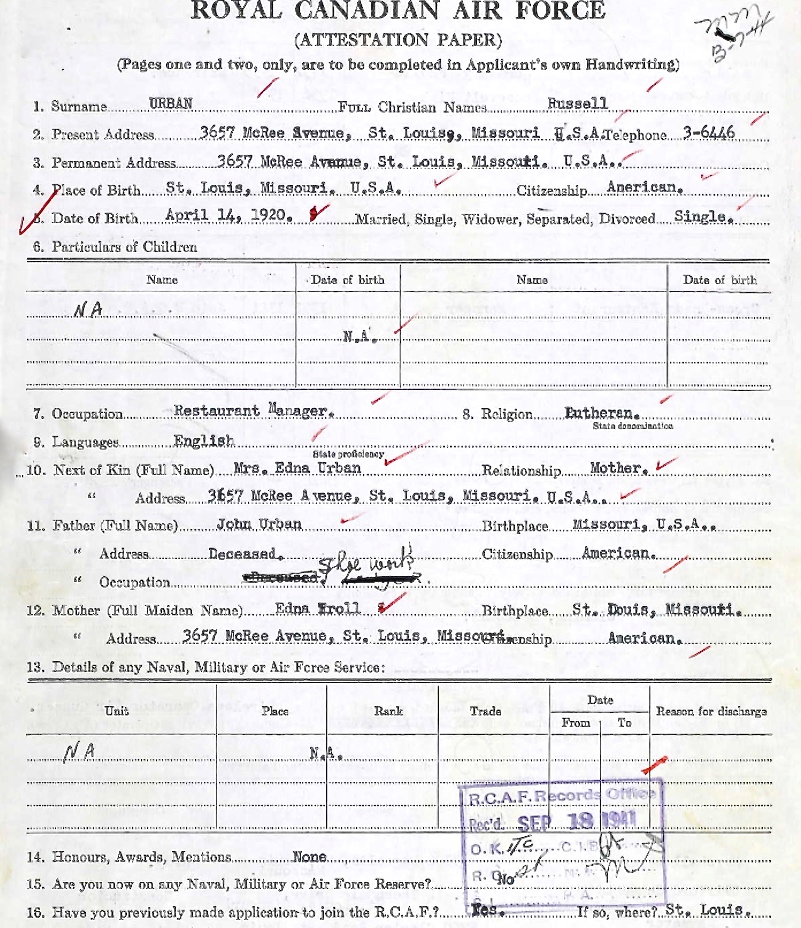 ROYAL CANADIAN AIR FORCE
(ATTESTATION PAPER)
(Pages one and two, only, are to be completed in Applicant's own Handwriting)
1. Surname URBAN Full Christian Names Russell
2. Present Address 3657 McRee Avenue, St. Louis, Missouri U.S.A. Telephone 3-6446
3. Permanent Address 3657 McRee Avenue, St. Louis, Missouri. U.S.A..
4. Place of Birth St. Louis, Missouri. U.S.A. Citizenship American.
5. Date of Birth April 14, 1920. Married, Single, Widower, Separated, Divorced Single.
6. Particulars of Children
Name Date of birth Name Date of birth
NA
N.A.
7. Occupation Restaurant Manager. 8. Religion Lutheran.
State denomination
9. Languages English
State proficiency
10. Next of Kin (Full Name) Mrs. Edna Urban Relationship Mother.
" Address 3657 McRee Avenue, St. Louis, Missouri. U.S.A..
11. Father (Full Name) John Urban Birthplace Missouri, U.S.A..
" Address Deceased. Citizenship American.
" Occupation Deceased. Shoe work
12. Mother (Full Maiden Name) Edna Troll Birthplace St. Louis, Missouri.
" Address 3657 McRee Avenue, St. Louis, Missouri. Citizenship American.
13. Details of any Naval, Military or Air Force Service:
Unit Place Rank Trade Date From To Reason for discharge
NA N.A.
R.C.A.F. Records Office
Rec'd. SEP 18 1941
O.K.
14. Honours, Awards, Mentions None
15. Are you now on any Naval, Military or Air Force Reserve? No
16. Have you previously made application to join the R.C.A.F.? Yes. If so, where? St. Louis.